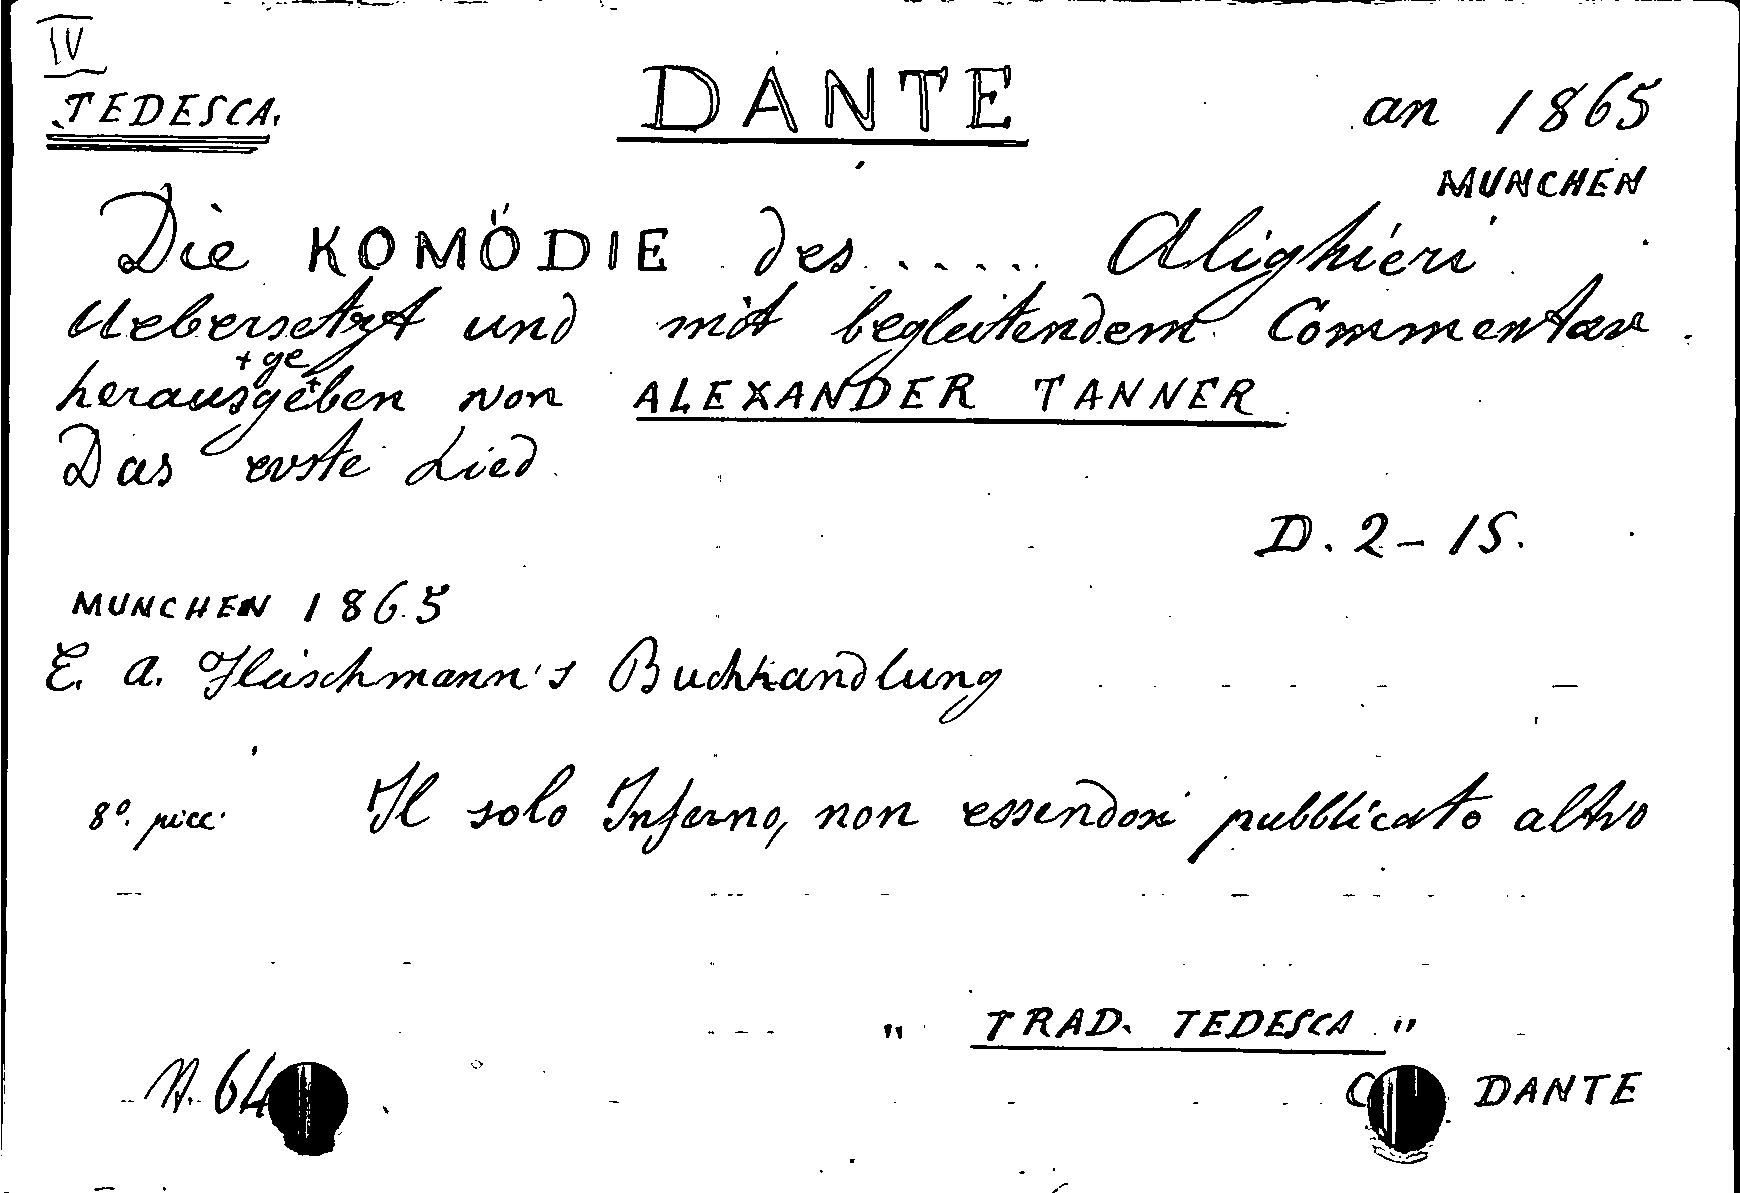 IV
TEDESCA.
DANTE
an 1865
MUNCHEN
Die KOMÖDIE des ..... Alighieri
Uebersetzt und mit begleitendem Commentar
+ ge
herausgeben von ALEXANDER TANNER
Das erste Lied
D. 2 - 15.
MUNCHEN 1865
E. A. Fleischmann's Buchhandlung
8º. picc. Il solo Inferno, non essendosi pubblicato altro
" TRAD. TEDESCA "
N. 64
DANTE